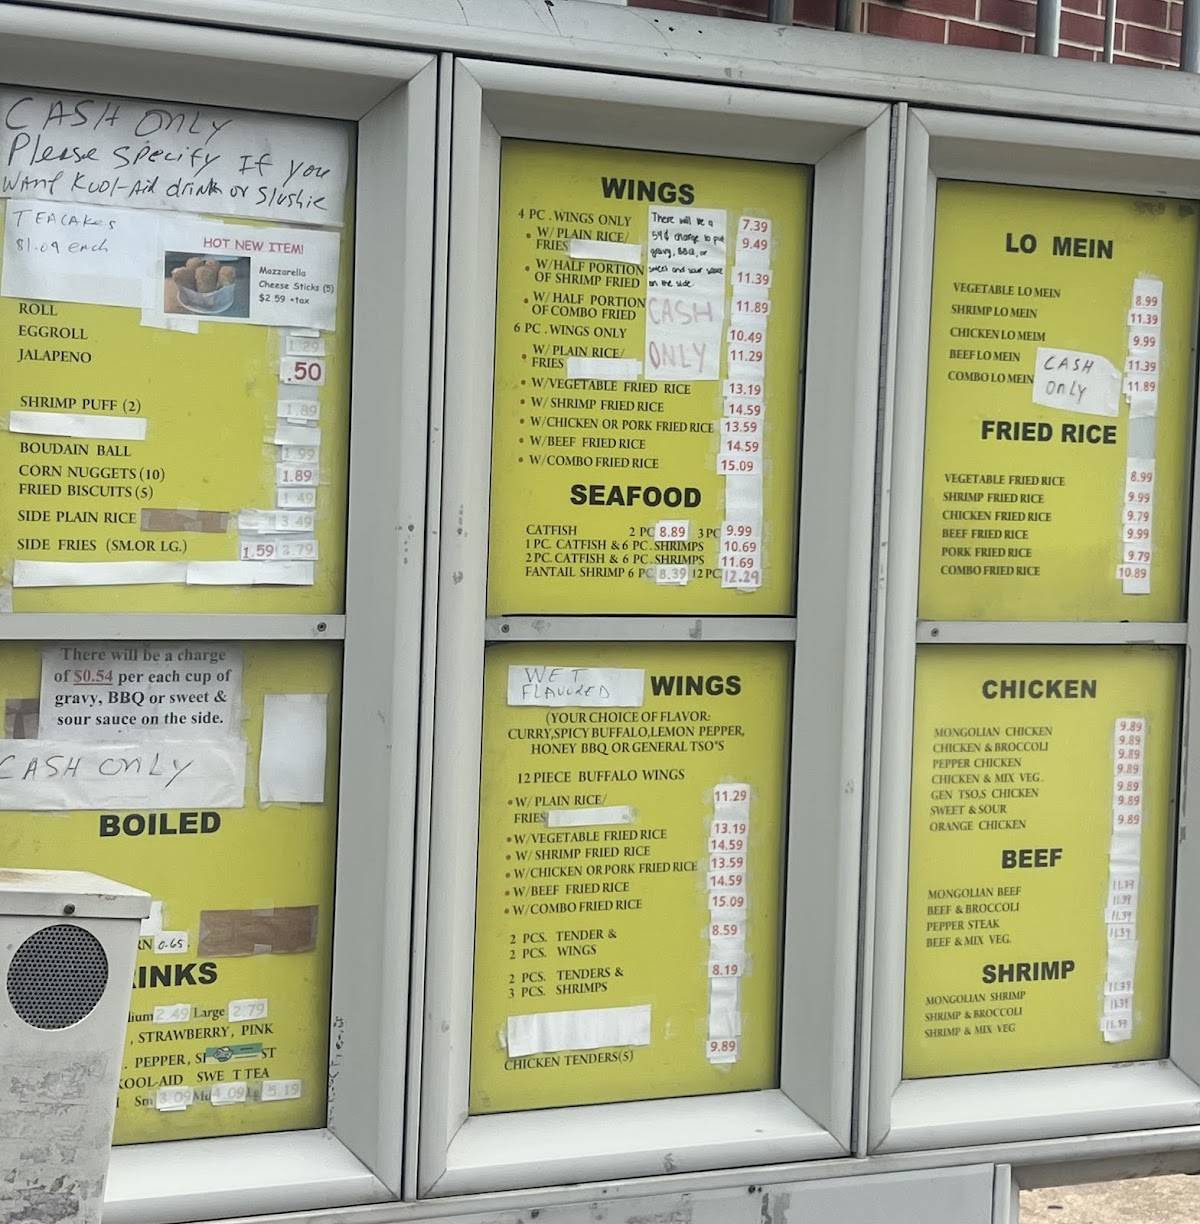 CASH ONLY
Please Specify If you
WANT Kool-Aid drink or Slushie
TEACAKES
$1.09 each
HOT NEW ITEM!
Mozzarella
Cheese Sticks (5)
$2.59 +tax
ROLL
EGGROLL 1.29
JALAPENO .50
SHRIMP PUFF (2) 1.89
BOUDAIN BALL 1.99
CORN NUGGETS (10) 1.89
FRIED BISCUITS (5) 1.49
SIDE PLAIN RICE 3.49
SIDE FRIES (SM.OR LG.) 1.59 2.79
There will be a charge
of $0.54 per each cup of
gravy, BBQ or sweet &
sour sauce on the side.
CASH ONLY
BOILED
RN 0.65
INKS
ium 2.49 Large 2.79
, STRAWBERRY, PINK
. PEPPER, SP ST
KOOL-AID SWE T TEA
Sm 3.09 Md 4.09 Lg 5.19
WINGS
4 PC . WINGS ONLY 7.39
• W/ PLAIN RICE/
FRIES 9.49
• W/HALF PORTION
OF SHRIMP FRIED 11.39
• W/ HALF PORTION
OF COMBO FRIED 11.89
6 PC . WINGS ONLY 10.49
• W/ PLAIN RICE/
FRIES 11.29
There will be a
59¢ charge to put
gravy, BBQ, or
sweet and sour sauce
on the side.
CASH
ONLY
• W/VEGETABLE FRIED RICE 13.19
• W/ SHRIMP FRIED RICE 14.59
• W/CHICKEN OR PORK FRIED RICE 13.59
• W/BEEF FRIED RICE 14.59
• W/COMBO FRIED RICE 15.09
SEAFOOD
CATFISH 2 PC 8.89 3 PC 9.99
1 PC. CATFISH & 6 PC. SHRIMPS 10.69
2 PC. CATFISH & 6 PC. SHRIMPS 11.69
FANTAIL SHRIMP 6 PC 8.39 12 PC 12.29
WET
FLAVORED
WINGS
(YOUR CHOICE OF FLAVOR:
CURRY,SPICY BUFFALO,LEMON PEPPER,
HONEY BBQ OR GENERAL TSO'S
12 PIECE BUFFALO WINGS
• W/ PLAIN RICE/ 11.29
FRIES
• W/VEGETABLE FRIED RICE 13.19
• W/ SHRIMP FRIED RICE 14.59
• W/CHICKEN OR PORK FRIED RICE 13.59
• W/BEEF FRIED RICE 14.59
• W/COMBO FRIED RICE 15.09
2 PCS. TENDER & 8.59
2 PCS. WINGS
2 PCS. TENDERS & 8.19
3 PCS. SHRIMPS
CHICKEN TENDERS(5) 9.89
LO MEIN
VEGETABLE LO MEIN 8.99
SHRIMP LO MEIN 11.39
CHICKEN LO MEIM 9.99
BEEF LO MEIN 11.39
COMBO LO MEIN 11.89
CASH
ONLY
FRIED RICE
VEGETABLE FRIED RICE 8.99
SHRIMP FRIED RICE 9.99
CHICKEN FRIED RICE 9.79
BEEF FRIED RICE 9.99
PORK FRIED RICE 9.79
COMBO FRIED RICE 10.89
CHICKEN
MONGOLIAN CHICKEN 9.89
CHICKEN & BROCCOLI 9.89
PEPPER CHICKEN 9.89
CHICKEN & MIX VEG. 9.89
GEN TSO,S CHICKEN 9.89
SWEET & SOUR 9.89
ORANGE CHICKEN 9.89
BEEF
MONGOLIAN BEEF 11.39
BEEF & BROCCOLI 11.39
PEPPER STEAK 11.39
BEEF & MIX VEG. 11.39
SHRIMP
MONGOLIAN SHRIMP 11.39
SHRIMP & BROCCOLI 11.39
SHRIMP & MIX VEG 11.39